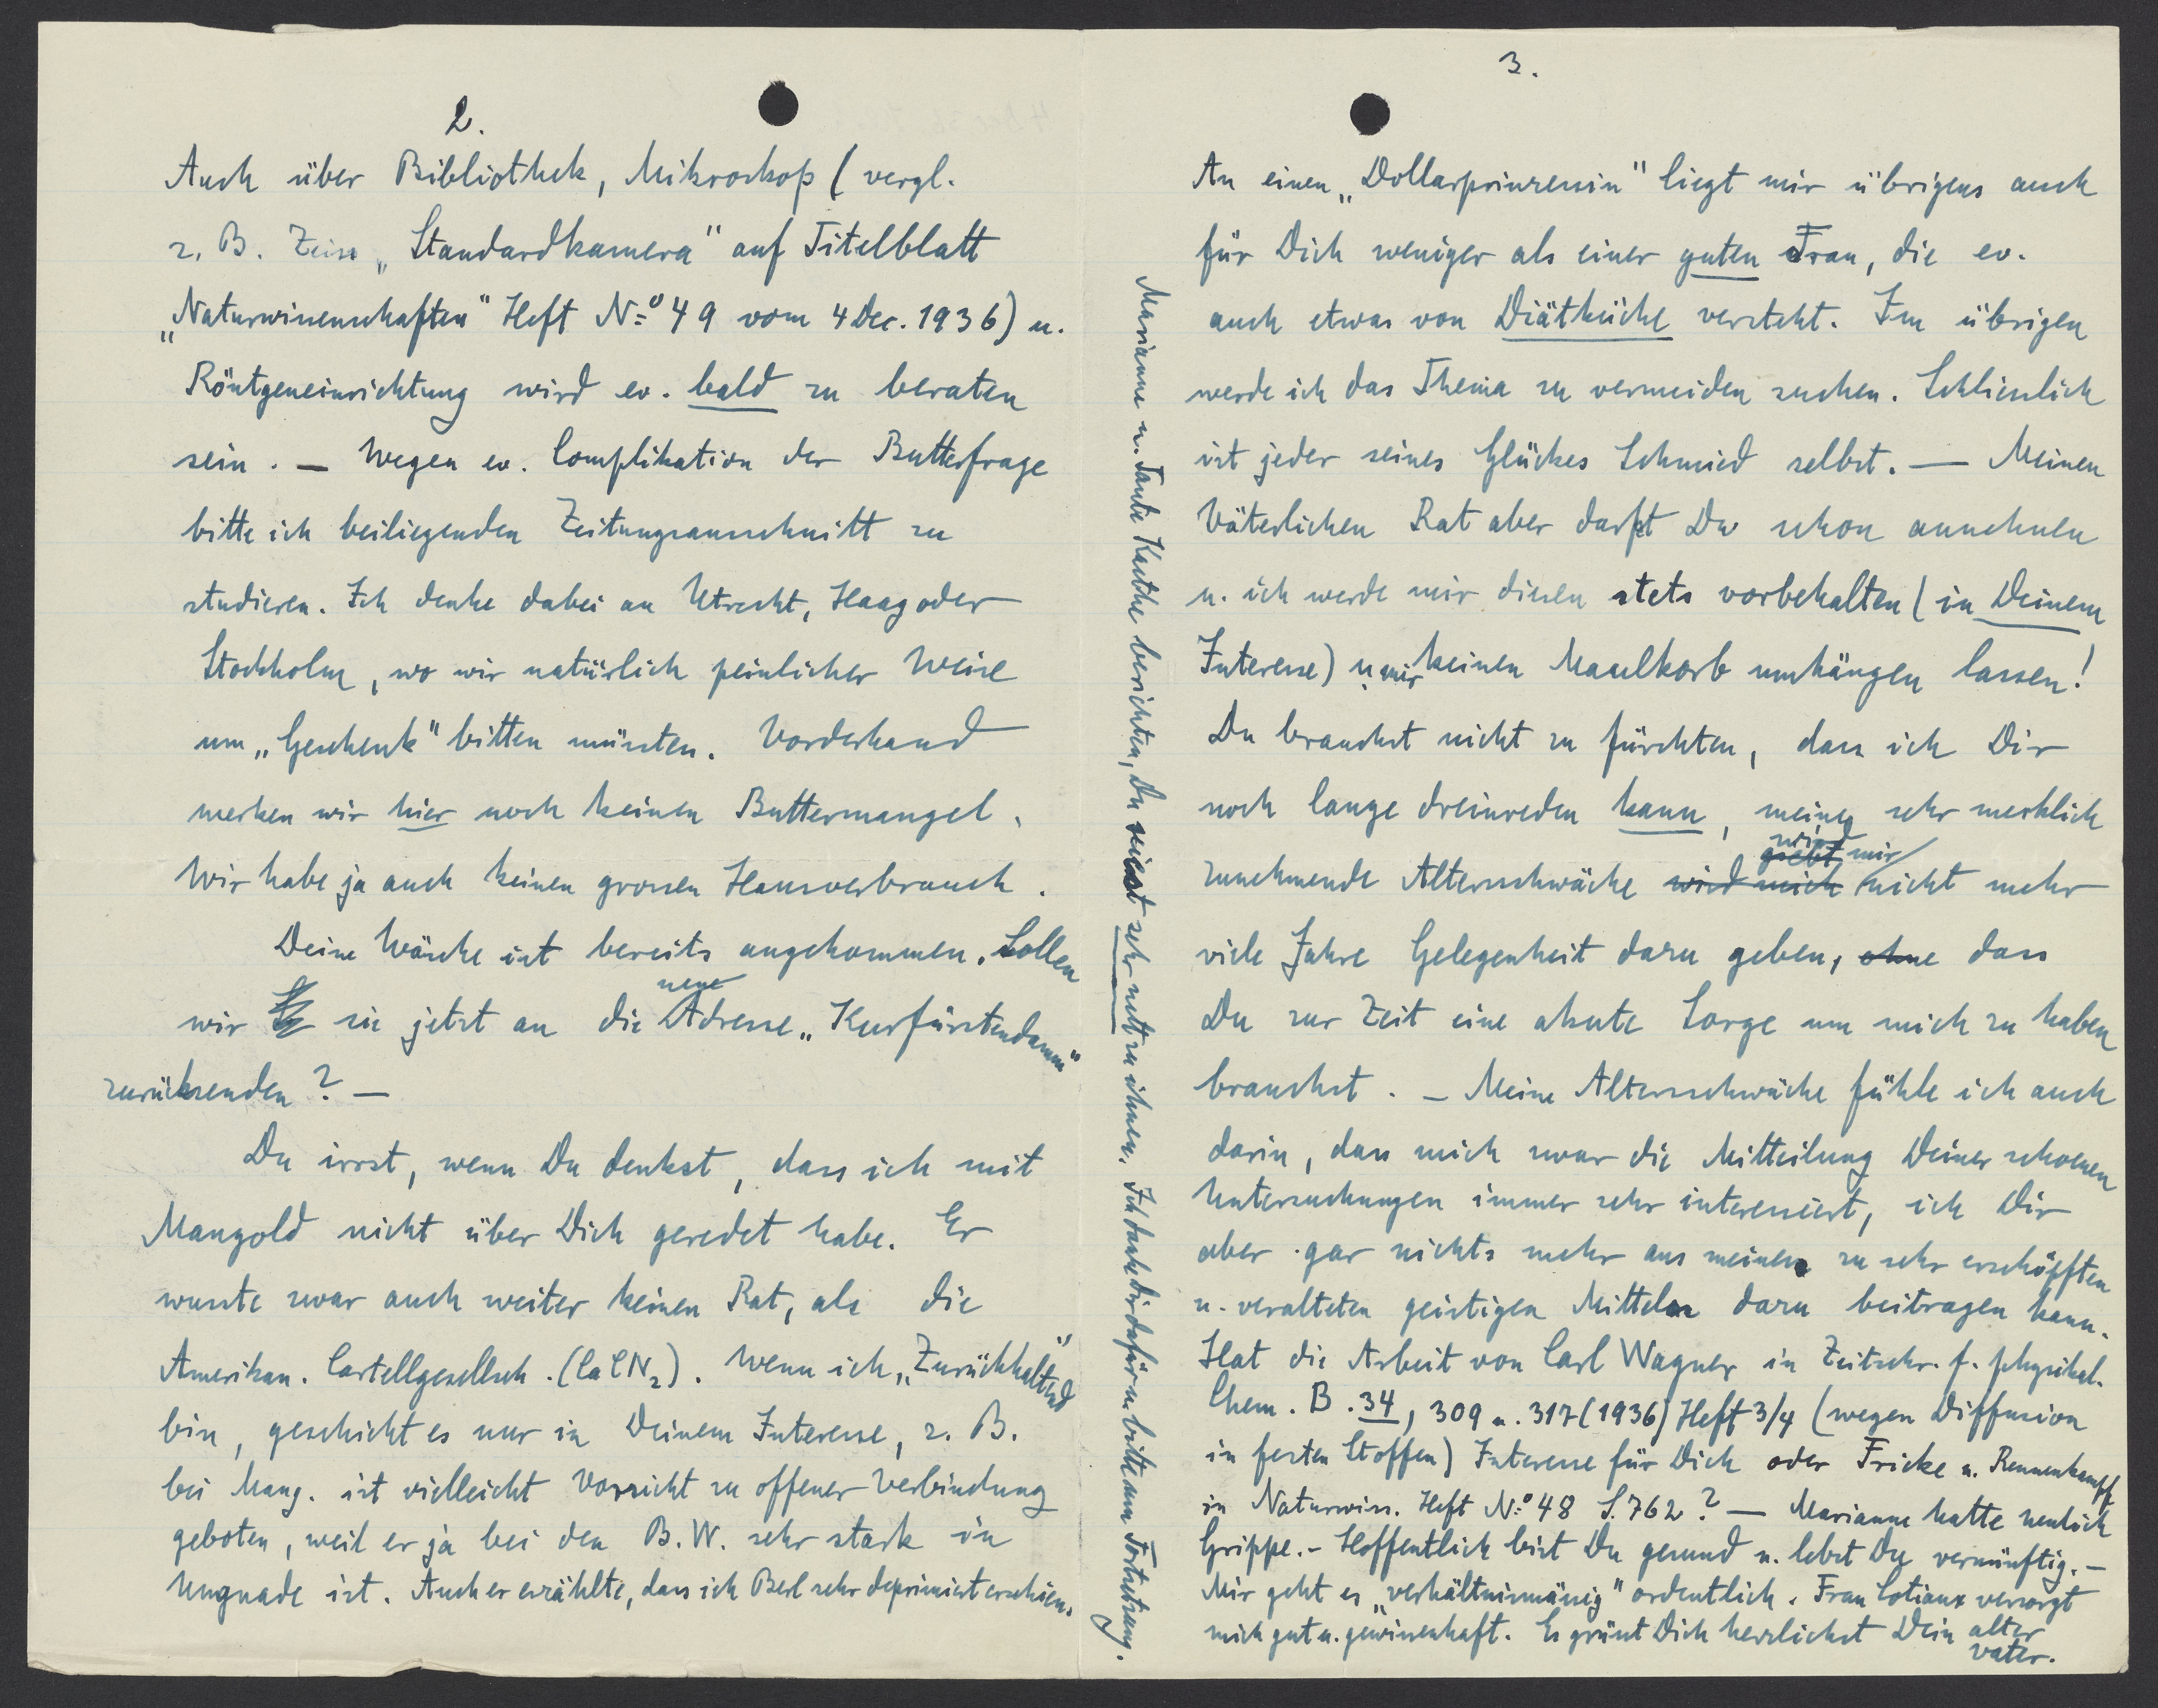 2.
Auch über Bibliothek, Mikroskop (vergl.
z. B. Zeiss „Standardkamera" auf Titelblatt
„Naturwissenschaften" Heft No 49 vom 4 Dec. 1936) u.
Röntgeneinrichtung wird ev. bald zu beraten
sein. — Wegen ev. Complikation der Butterfrage
bitte ich beiliegenden Zeitungsausschnitt zu
studieren. Ich denke dabei an Utrecht, Haag oder
Stockholm, wo wir natürlich peinlicher Weise
um „Geschenk" bitten müssten. Vorderhand
merken wir hier noch keinen Buttermangel.
Wir habe ja auch keinen grossen Hausverbrauch.
Deine Wäsche ist bereits angekommen. Sollen
wir sie jetzt an die neue Adresse „Kurfürstendamm"
zurücksenden? —
Du irrst, wenn Du denkst, dass ich mit
Mangold nicht über Dich geredet habe. Er
wusste zwar auch weiter keinen Rat, als die
Amerikan. Cartellgesellsch. (CaCN2). Wenn ich „Zurückhaltend"
bin, geschieht es nur in Deinem Interesse, z. B.
bei Mang. ist vielleicht Vorsicht zu offener Verbindung
geboten, weil er ja bei den B.W. sehr stark in
Ungnade ist. Auch er erzählte, dass ich Berl sehr deprimiert erschien.
3.
An einen „Dollarprinzessin" liegt mir übrigens auch
für Dich weniger als einer guten Frau, die ev.
auch etwas von Diätküche versteht. Im übrigen
werde ich das Thema zu vermeiden suchen. Schliesslich
ist jeder seines Glückes Schmied selbst. — Meinen
Väterlichen Rat aber darfst Du schon annehmen
u. ich werde mir diesen stets vorbehalten (in Deinem
Interesse) u mir keinen Maulkorb umhängen lassen!
Du brauchst nicht zu fürchten, dass ich Dir
noch lange dreinreden kann, meine sehr merklich
zunehmende Altersschwäche wird mich giebt wird mir nicht mehr
viele Jahre Gelegenheit dazu geben, ohne dass
Du zur Zeit eine akute Sorge um mich zu haben
brauchst. — Meine Altersschwäche fühle ich auch
darin, dass mich zwar die Mitteilung Deiner schoenen
Untersuchungen immer sehr interessiert, ich Dir
aber gar nichts mehr aus meinen zu sehr erschöpften
u. veralteten geistigen Mitteln dazu beitragen kann.
Hat die Arbeit von Carl Wagner in Zeitschr. f. physikal.
Chem. B. 34, 309 u. 317 (1936) Heft 3/4 (wegen Diffusion
in festen Stoffen) Interesse für Dich oder Fricke u. Rennenkampff
in Naturwiss. Heft No 48 S. 762? — Marianne hatte neulich
Grippe. - Hoffentlich bist Du gesund u. lebst Du vernünftig. —
Mir geht es „verhältnismässig" ordentlich. Frau Cotiaux versorgt
mich gut u. gewissenhaft. Es grüsst Dich herzlichst Dein alter
Vater.
Marianne u. Tante Kaethe berichten, Du seiest sehr nett zu ihnen. Ich danke Dir dafür u. bitte um Fortsetzung.